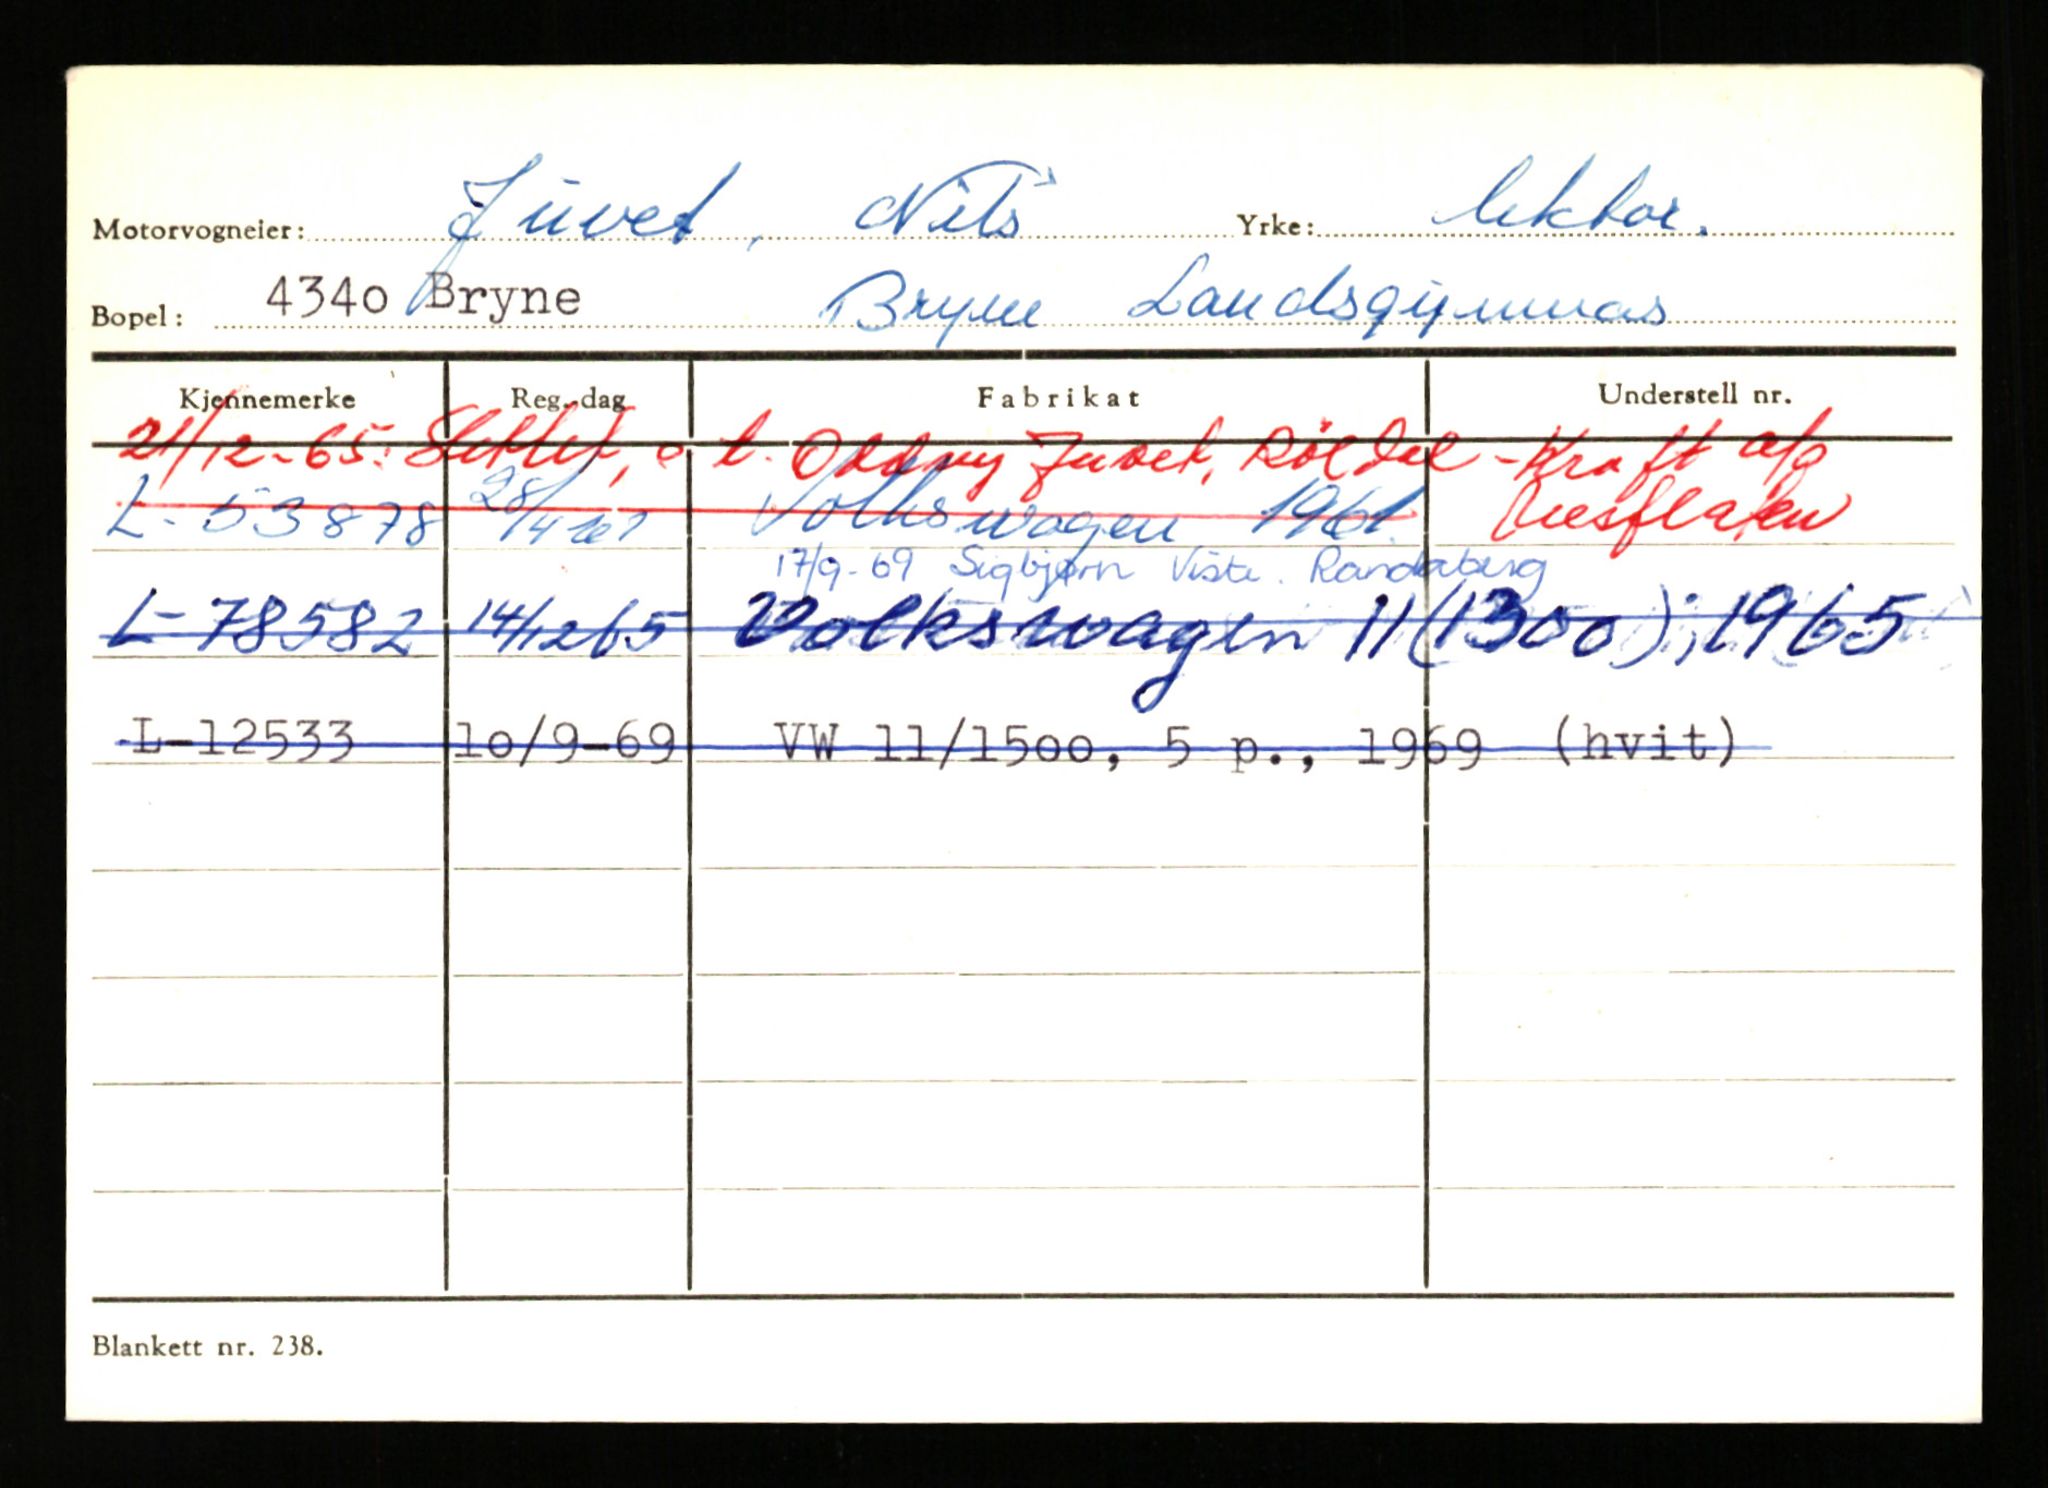 Motorvogneier: Juvet, Nils Yrke: lektor.
Bopel: 4340 Bryne Bryne Landsgymnas
Kjennemerke Reg.-dag Fabrikat Understell nr.
21/12-65: Slettet, o t. Oddny Juvet, Röldal-Kraft a/s
Nesflaten
L-53878 28/4 61 Volkswagen 1961.
17/9-69 Sigbjørn Viste. Randaberg
L-78582 14/12 65 Volkswagen 11 (1300); 1965
L-12533 10/9-69 VW 11/1500, 5 p., 1969 (hvit)
Blankett nr. 238.